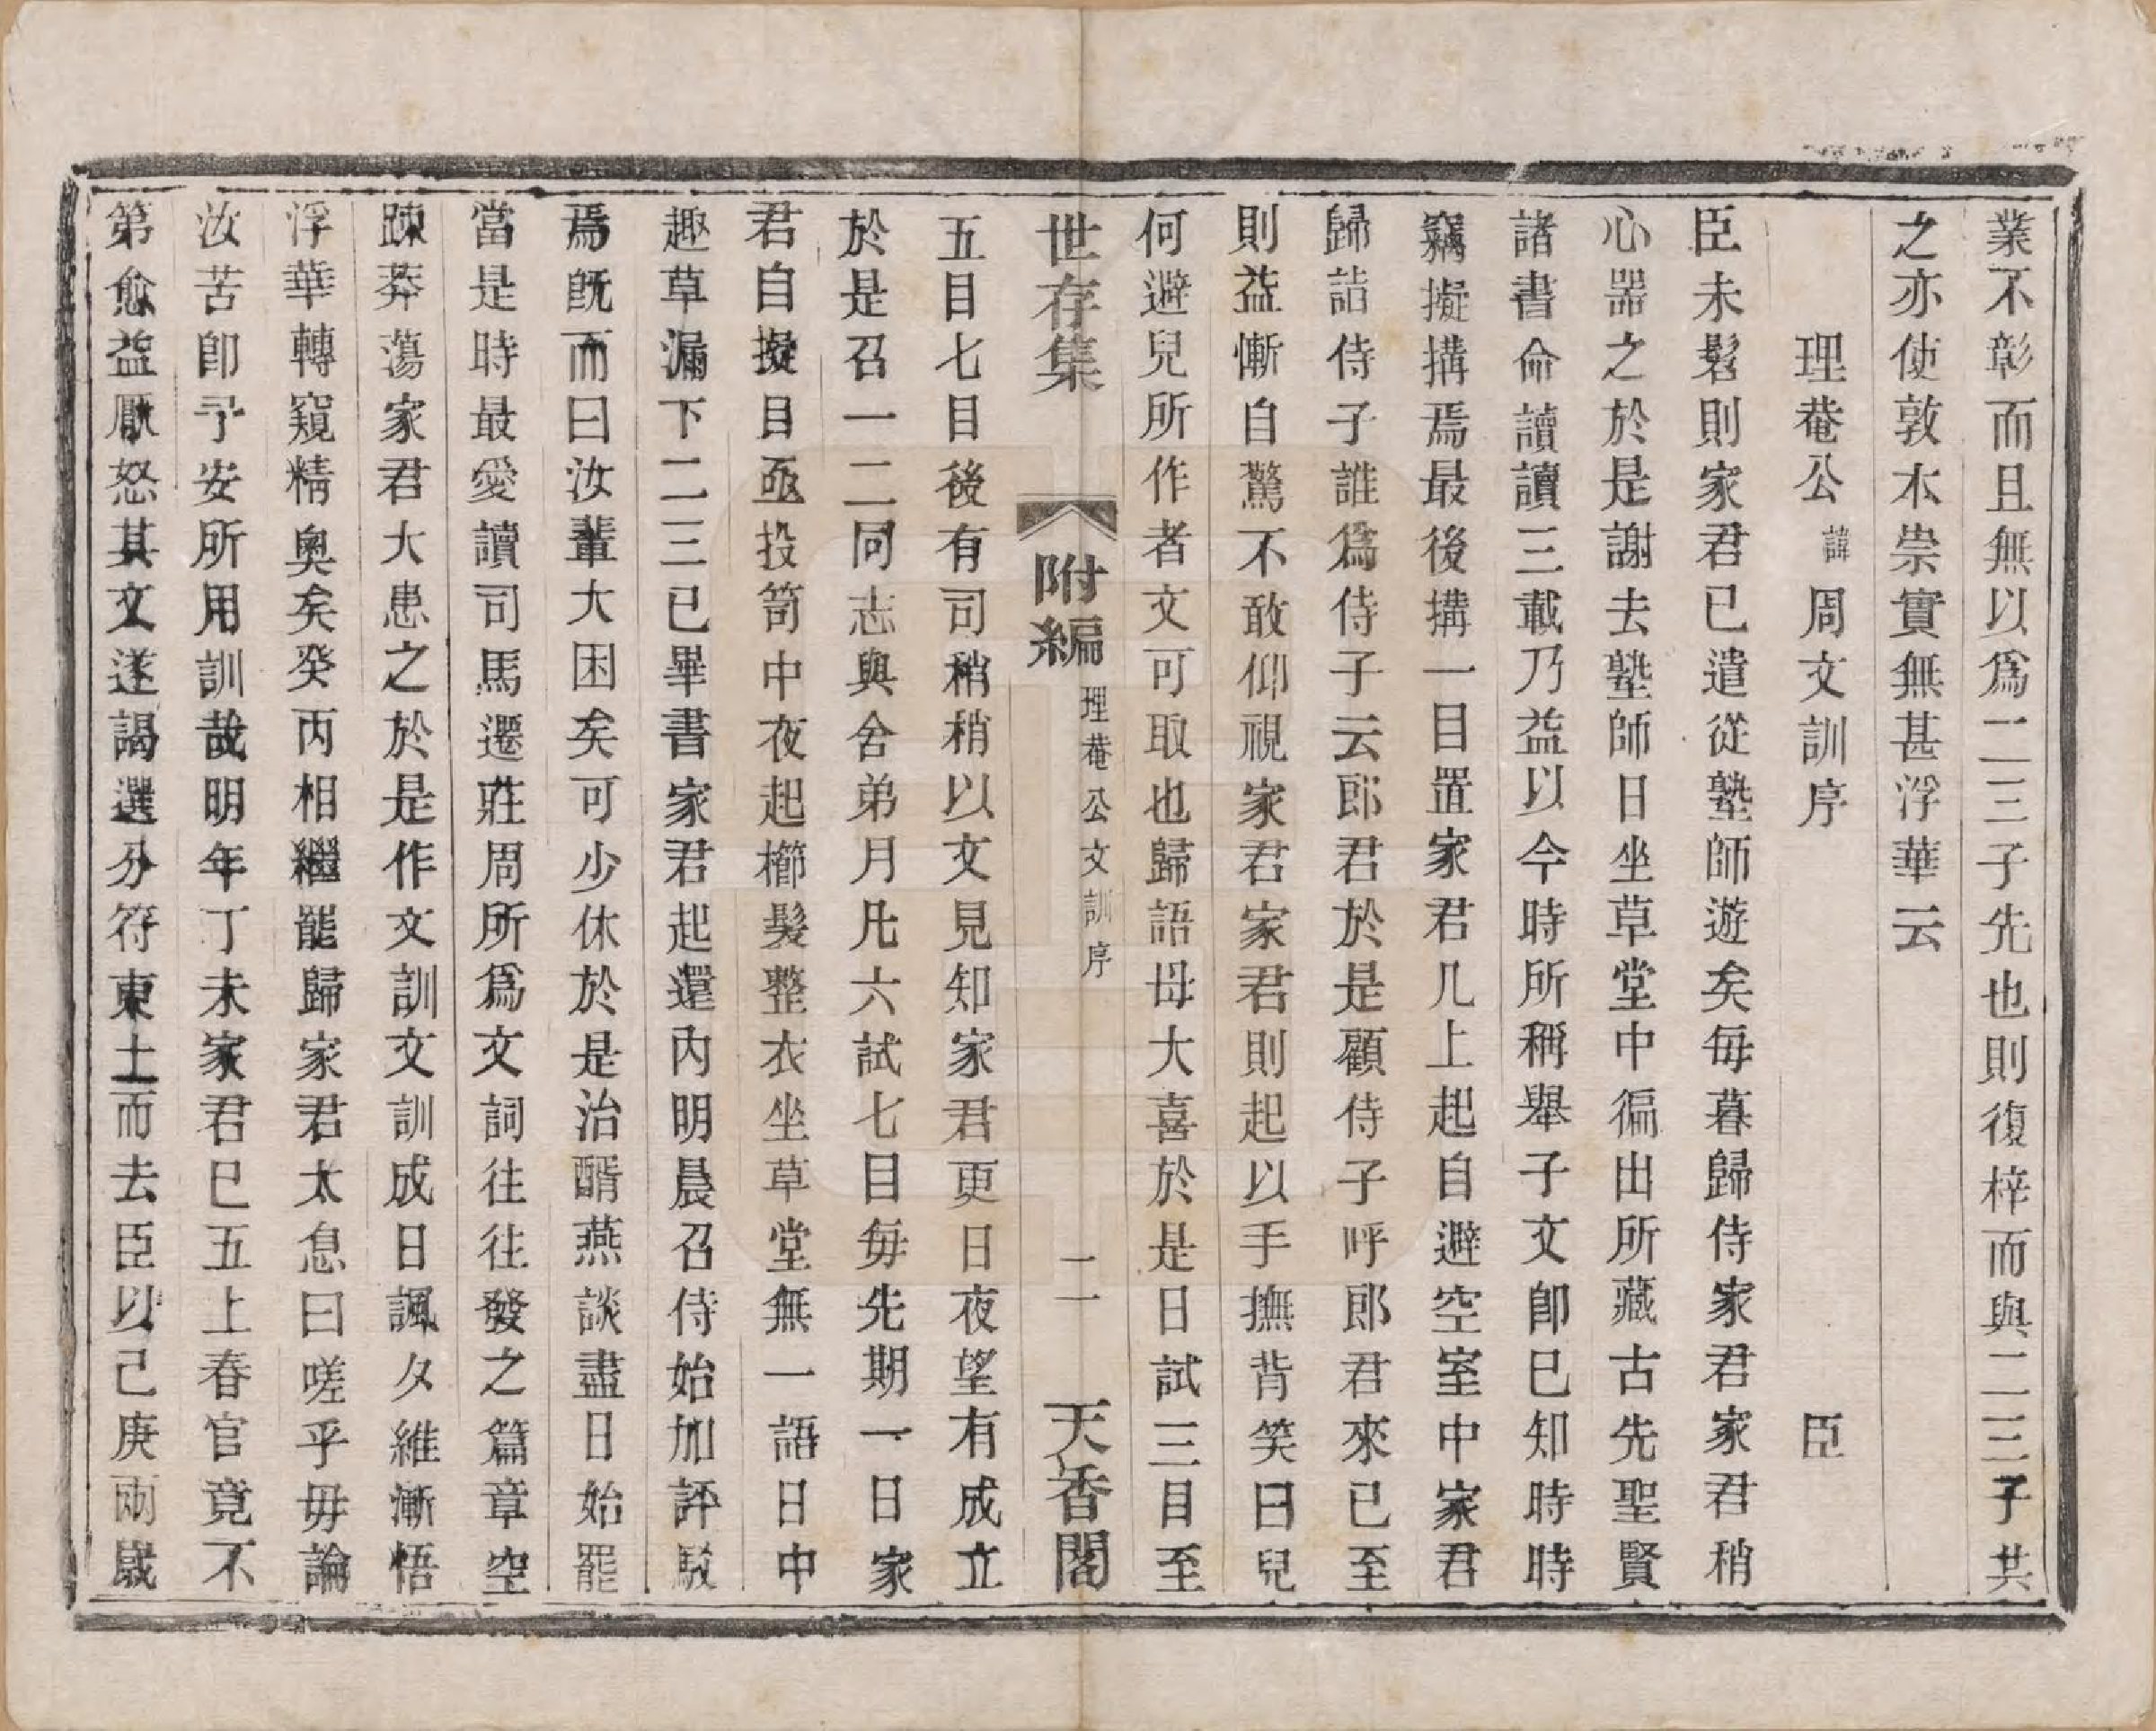 業不彰而且無以爲二三子先也則復梓而與二三子共
之亦使敦本崇實無甚浮華云
理菴公諱周文訓序 臣
臣未髫則家君已遣從塾師遊矣每暮歸侍家君家君稍
心器之於是謝去塾師日坐草堂中徧出所藏古先聖賢
諸書命讀讀三載乃益以今時所稱舉子文卽已知時時
竊擬搆焉最後搆一目置家君几上起自避空室中家君
歸詰侍子誰爲侍子云郎君於是顧侍子呼郎君來已至
則益慚自驚不敢仰視家君家君則起以手撫背笑曰兒
何避兒所作者文可取也歸語母大喜於是日試三目至
世存集 附編 理菴公文訓序 二 天香閣
五目七目後有司稍稍以文見知家君更日夜望有成立
於是召一二同志與舍弟月凡六試七目每先期一日家
君自擬目亟投笥中夜起櫛髮整衣坐草堂無一語日中
趣草漏下二三已畢書家君起還內明晨召侍始加評駁
焉旣而曰汝輩大困矣可少休於是治醑燕談盡日始罷
當是時最愛讀司馬遷莊周所爲文詞往往發之篇章空
踈莽蕩家君大患之於是作文訓文訓成日諷夕維漸悟
浮華轉窺精奧矣癸丙相繼罷歸家君太息曰嗟乎毋論
汝苦卽予安所用訓哉明年丁未家君已五上春官竟不
第愈益厭怒其文遂謁選分符東土而去臣以己庚兩嵗